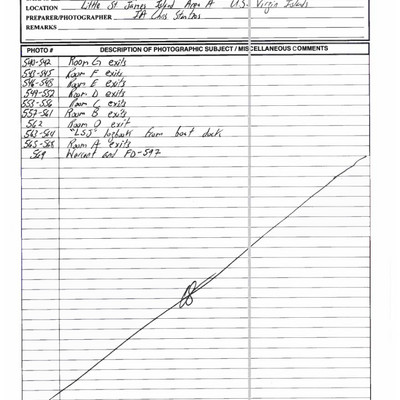 LOCATION Little St James Island Area A U.S. Virgin Islands
PREPARER/PHOTOGRAPHER IA Chris
REMARKS
PHOTO # DESCRIPTION OF PHOTOGRAPHIC SUBJECT / MISCELLANEOUS COMMENTS
540-542 Room G exits
543-545 Room F exits
546-548 Room E exits
549-552 Room D exits
553-556 Room C exits
557-561 Room B exits
562 Room O exit
563-564 "LSJ" logbook from boat dock
565-568 Room A exits
569 Warrant and FD-597